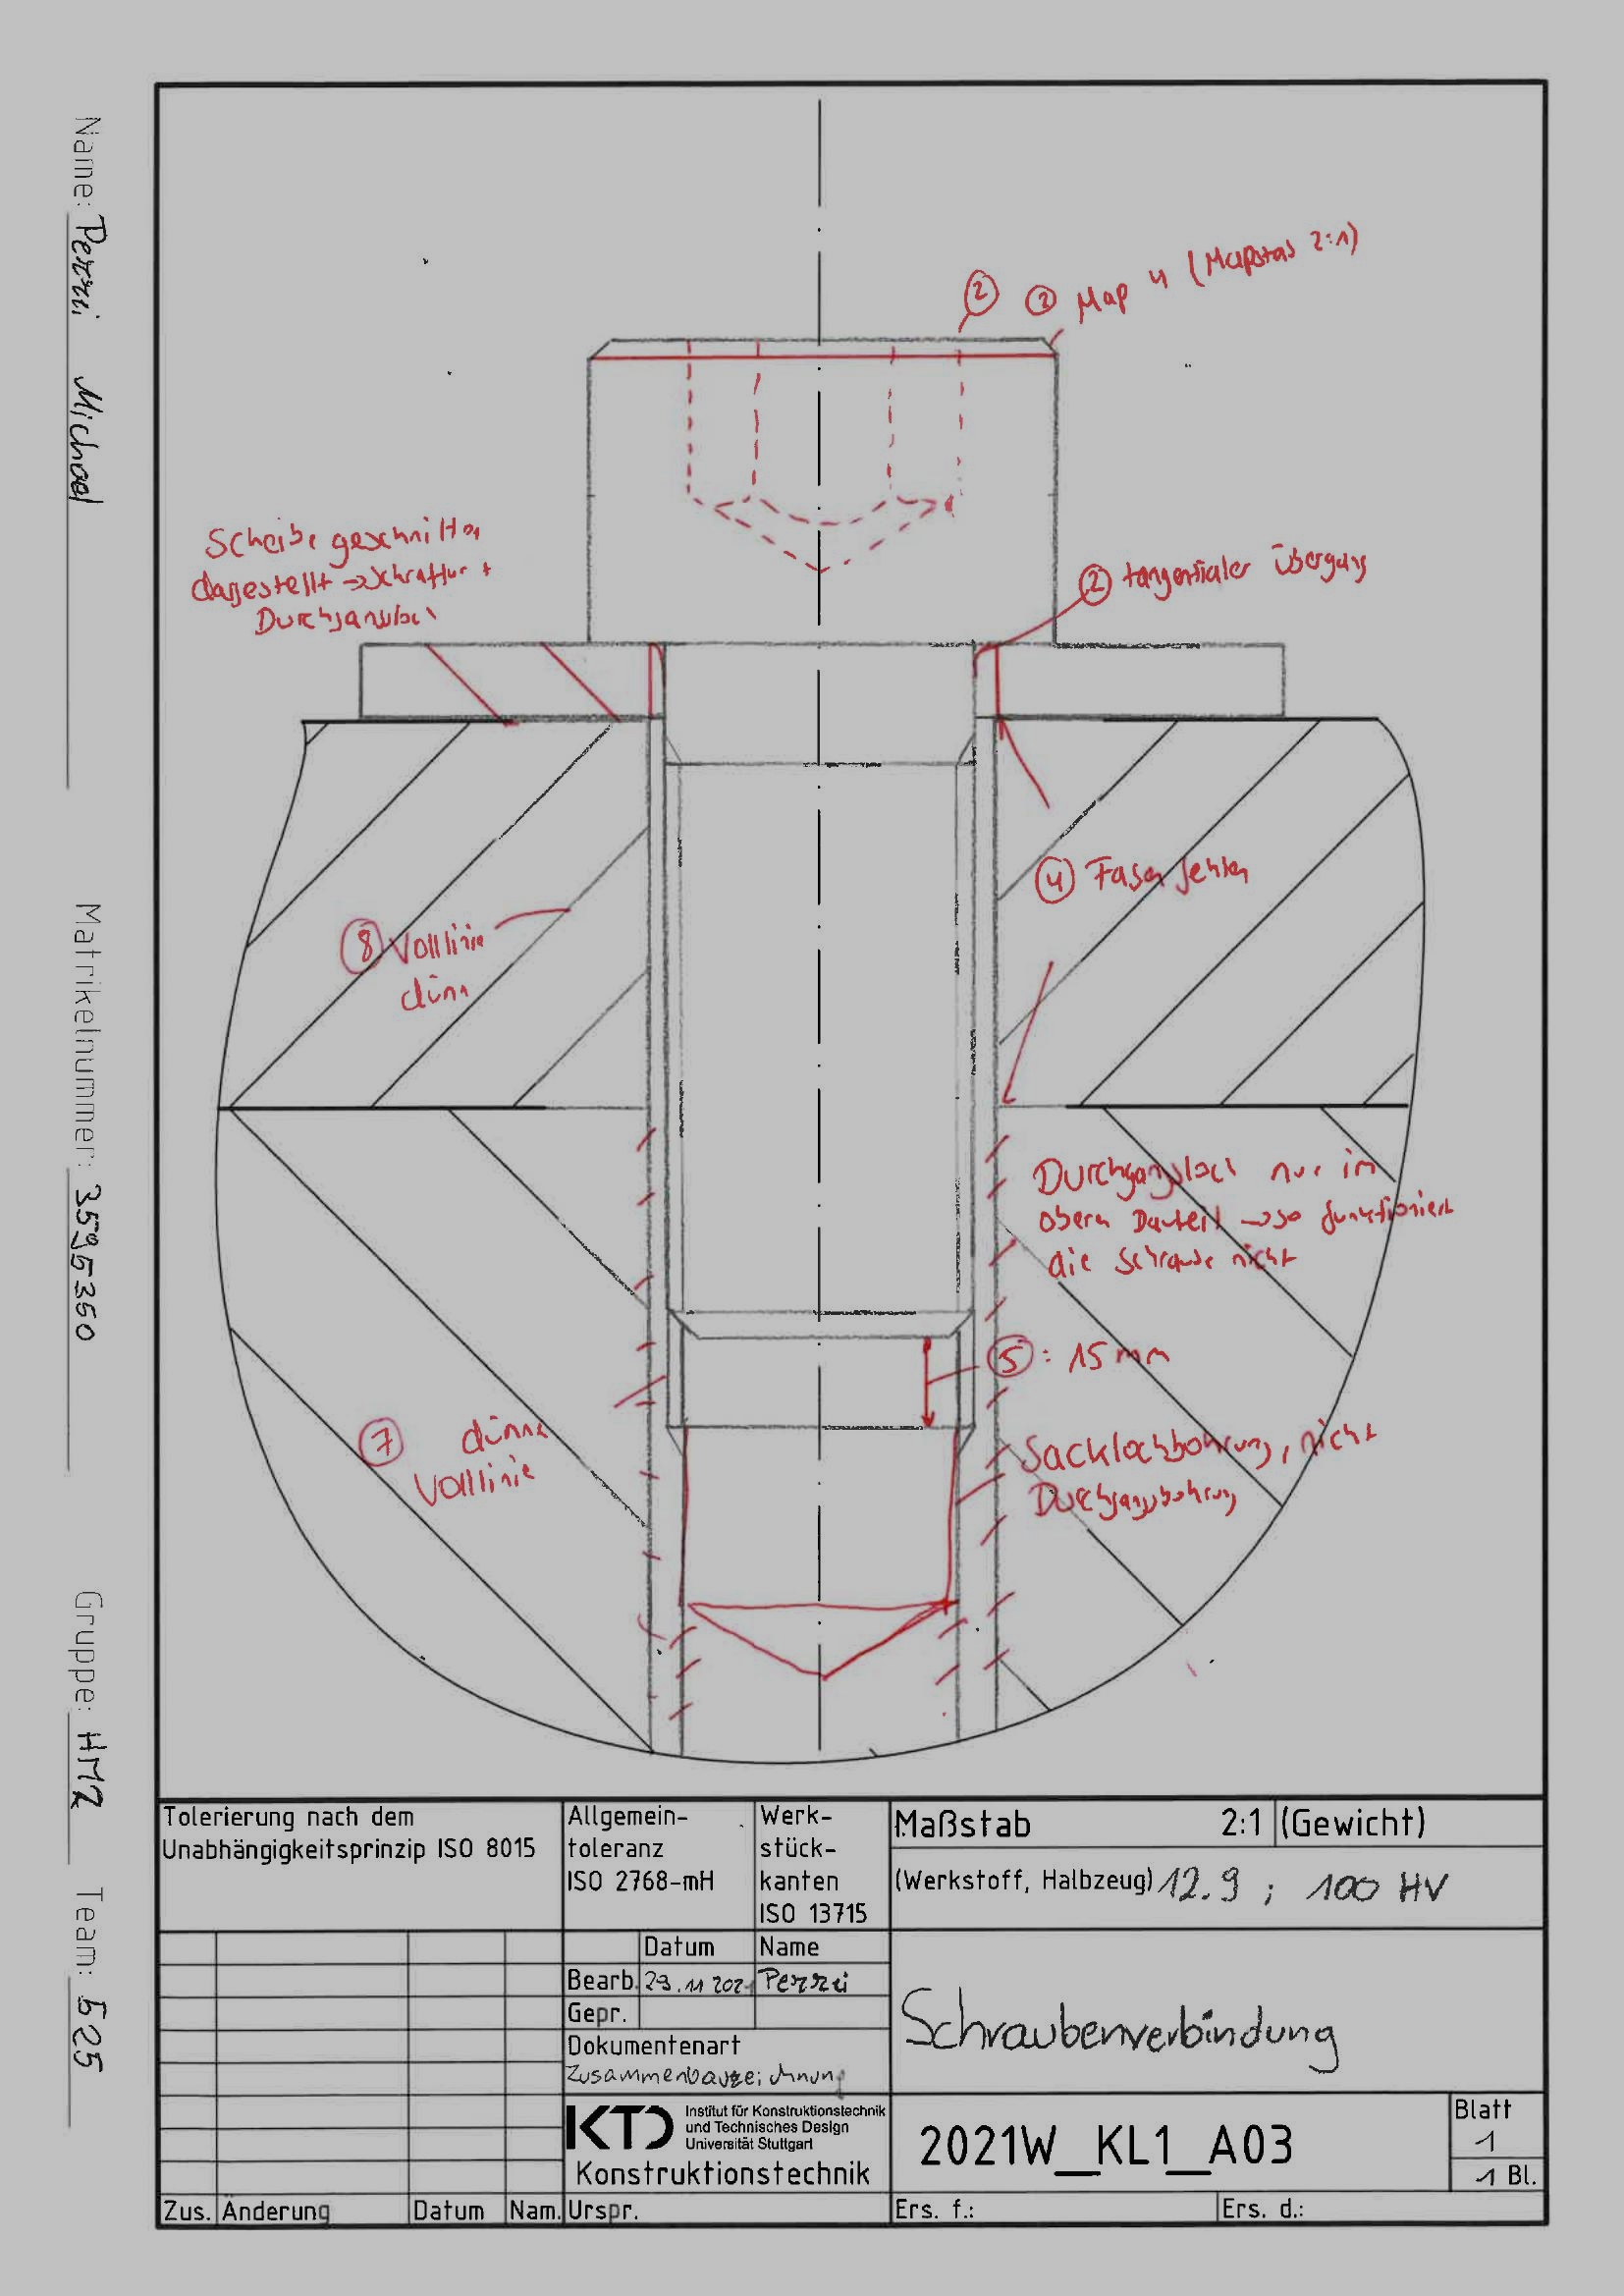 Name: Perri Michael
Matrikelnummer: 3595350
Gruppe: HM2 Team: 525
② ② Maß 4 (Maßstab 2:1)
Scheibe geschnitten
dargestellt → Schraffur +
② tangentialer Übergang
④ Fasen fehlen
⑧ Vollinie
dünn
Durchgangsloch nur im
obern Bauteil → so funktioniert
die Schraube nicht
⑤: 15 mm
⑦ dünne
Vollinie
Sacklochbohrung, nicht
Durchgangsbohrung
Tolerierung nach dem
Unabhängigkeitsprinzip ISO 8015
Allgemein-
toleranz
ISO 2768-mH
Werk-
stück-
kanten
ISO 13715
Maßstab 2:1 (Gewicht)
(Werkstoff, Halbzeug) 12.9 ; 100 HV
Datum Name
Bearb. 29.11.2021 Perri
Gepr.
Dokumentenart
Zusammenbauzeichnung
Schraubenverbindung
KTD Institut für Konstruktionstechnik
und Technisches Design
Universität Stuttgart
Konstruktionstechnik
2021W_KL1_A03
Blatt
1
1 Bl.
Zus. Änderung Datum Nam. Urspr. Ers. f.: Ers. d.: